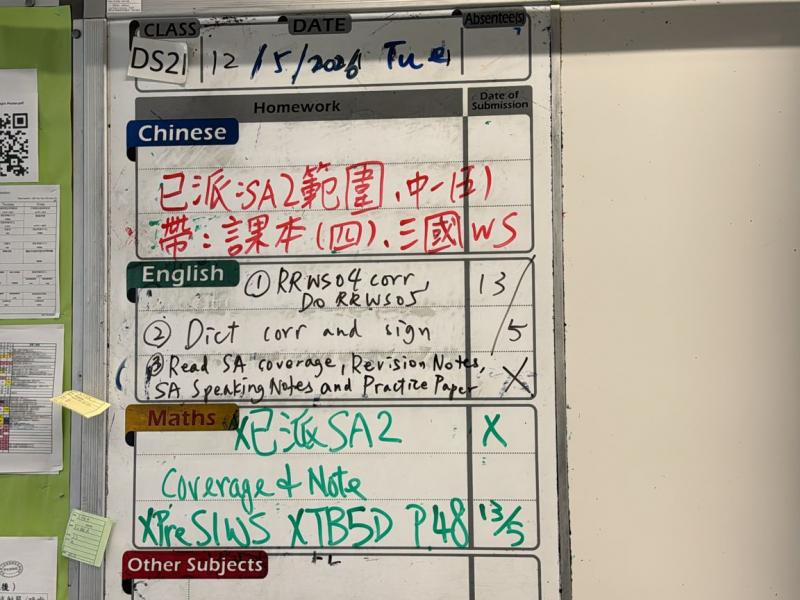 CLASS DATE Absentee(s)
DS21 12/5/2026 Tue
Homework Date of Submission
Chinese
已派:SA2範圍、中一(五)
帶:課本(四)、三國WS
English
① RRWS04 corr, 13/5
Do RRWS05
② Dict corr and sign
③ Read SA coverage, Revision Notes, X
SA Speaking Notes and Practice Paper
Maths
X已派SA2 X
Coverage & Note
XPreS1WS XTB5D P.48 13/5
Other Subjects